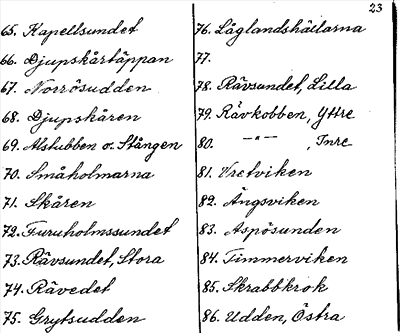 23
65. Kapellsundet
66. Djupskärtäppan
67. Norrösudden
68. Djupskären
69. Alstubben o. Stången
70. Småholmarna
71. Skären
72. Furuholmssundet
73. Rävsundet, Stora
74. Rävedet
75. Grytsudden
76. Låglandshällarna
77.
78. Rävsundet, Lilla
79. Rävkobben, Yttre
80. —"— , Inre
81. Vretviken
82. Ängsviken
83. Aspösunden
84. Timmerviken
85. Skrabbkrok
86. Udden, Östra